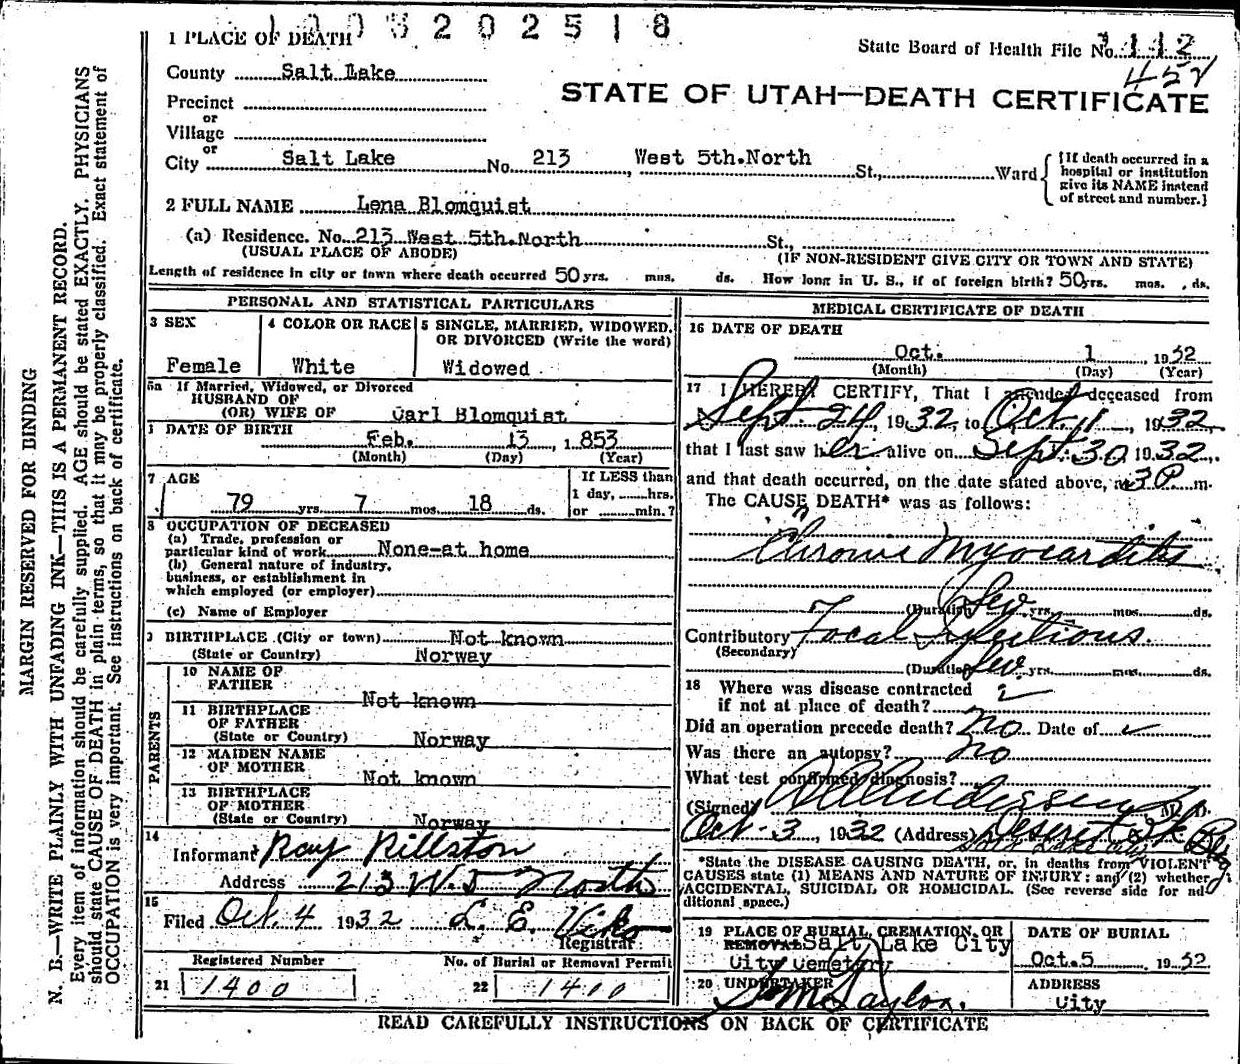 1 0 0 3 2 0 2 5 1 8
1 PLACE OF DEATH
State Board of Health File No. 1112
452
County Salt Lake
STATE OF UTAH—DEATH CERTIFICATE
Precinct
or
Village
or
City Salt Lake No. 213 West 5th.North St., Ward
{If death occurred in a
hospital or institution
give its NAME instead
of street and number.}
2 FULL NAME Lena Blomquist
(a) Residence. No. 213 West 5th.North St.,
(USUAL PLACE OF ABODE) (IF NON-RESIDENT GIVE CITY OR TOWN AND STATE)
Length of residence in city or town where death occurred 50 yrs. mos. ds. How long in U. S., if of foreign birth? 50 yrs. mos. ds.
PERSONAL AND STATISTICAL PARTICULARS
3 SEX
Female
4 COLOR OR RACE
White
5 SINGLE, MARRIED, WIDOWED,
OR DIVORCED (Write the word)
Widowed
5a If Married, Widowed, or Divorced
HUSBAND OF
(OR) WIFE OF Carl Blomquist
DATE OF BIRTH
Feb. 13, 1853
(Month) (Day) (Year)
7 AGE
79 yrs. 7 mos. 18 ds.
If LESS than
1 day, hrs.
or min.?
8 OCCUPATION OF DECEASED
(a) Trade, profession or
particular kind of work None-at home
(b) General nature of industry,
business, or establishment in
which employed (or employer)
(c) Name of Employer
9 BIRTHPLACE (City or town) Not known
(State or Country) Norway
PARENTS
10 NAME OF
FATHER
Not known
11 BIRTHPLACE
OF FATHER
(State or Country) Norway
12 MAIDEN NAME
OF MOTHER
Not known
13 BIRTHPLACE
OF MOTHER
(State or Country) Norway
14
Informant Ray
Address 213 W. 5 North
15
Filed Oct. 4 1932 L. E. Viko
Registrar
Registered Number No. of Burial or Removal Permit
21 1400 22 1400
MEDICAL CERTIFICATE OF DEATH
16 DATE OF DEATH
Oct. 1, 1932
(Month) (Day) (Year)
17 I HEREBY CERTIFY, That I attended deceased from
Sept. 24, 1932, to Oct. 1, 1932,
that I last saw her alive on Sept. 30, 1932,
and that death occurred, on the date stated above, at 3 P. m.
The CAUSE DEATH* was as follows:
Chronic Myocarditis
(Duration) Sev yrs. mos. ds.
Contributory Focal Infectious.
(Secondary)
(Duration) Sev yrs. mos. ds.
18 Where was disease contracted
if not at place of death?
Did an operation precede death? no Date of
Was there an autopsy? no
What test confirmed diagnosis?
(Signed) Anderson M. D.
Oct - 3, 1932 (Address) Deseret Bk Bldg
Salt Lake City
*State the DISEASE CAUSING DEATH, or, in deaths from VIOLENT
CAUSES state (1) MEANS AND NATURE OF INJURY; and (2) whether
ACCIDENTAL, SUICIDAL OR HOMICIDAL. (See reverse side for ad
ditional space.)
19 PLACE OF BURIAL, CREMATION, OR
REMOVAL Salt Lake City
City Cemetery
DATE OF BURIAL
Oct.5 1932
20 UNDERTAKER
S. M. Taylor.
ADDRESS
City
READ CAREFULLY INSTRUCTIONS ON BACK OF CERTIFICATE
MARGIN RESERVED FOR BINDING
N. B.—WRITE PLAINLY WITH UNFADING INK—THIS IS A PERMANENT RECORD.
Every item of information should be carefully supplied. AGE should be stated EXACTLY. PHYSICIANS
should state CAUSE OF DEATH in plain terms, so that it may be properly classified. Exact statement of
OCCUPATION is very important. See instructions on back of certificate.